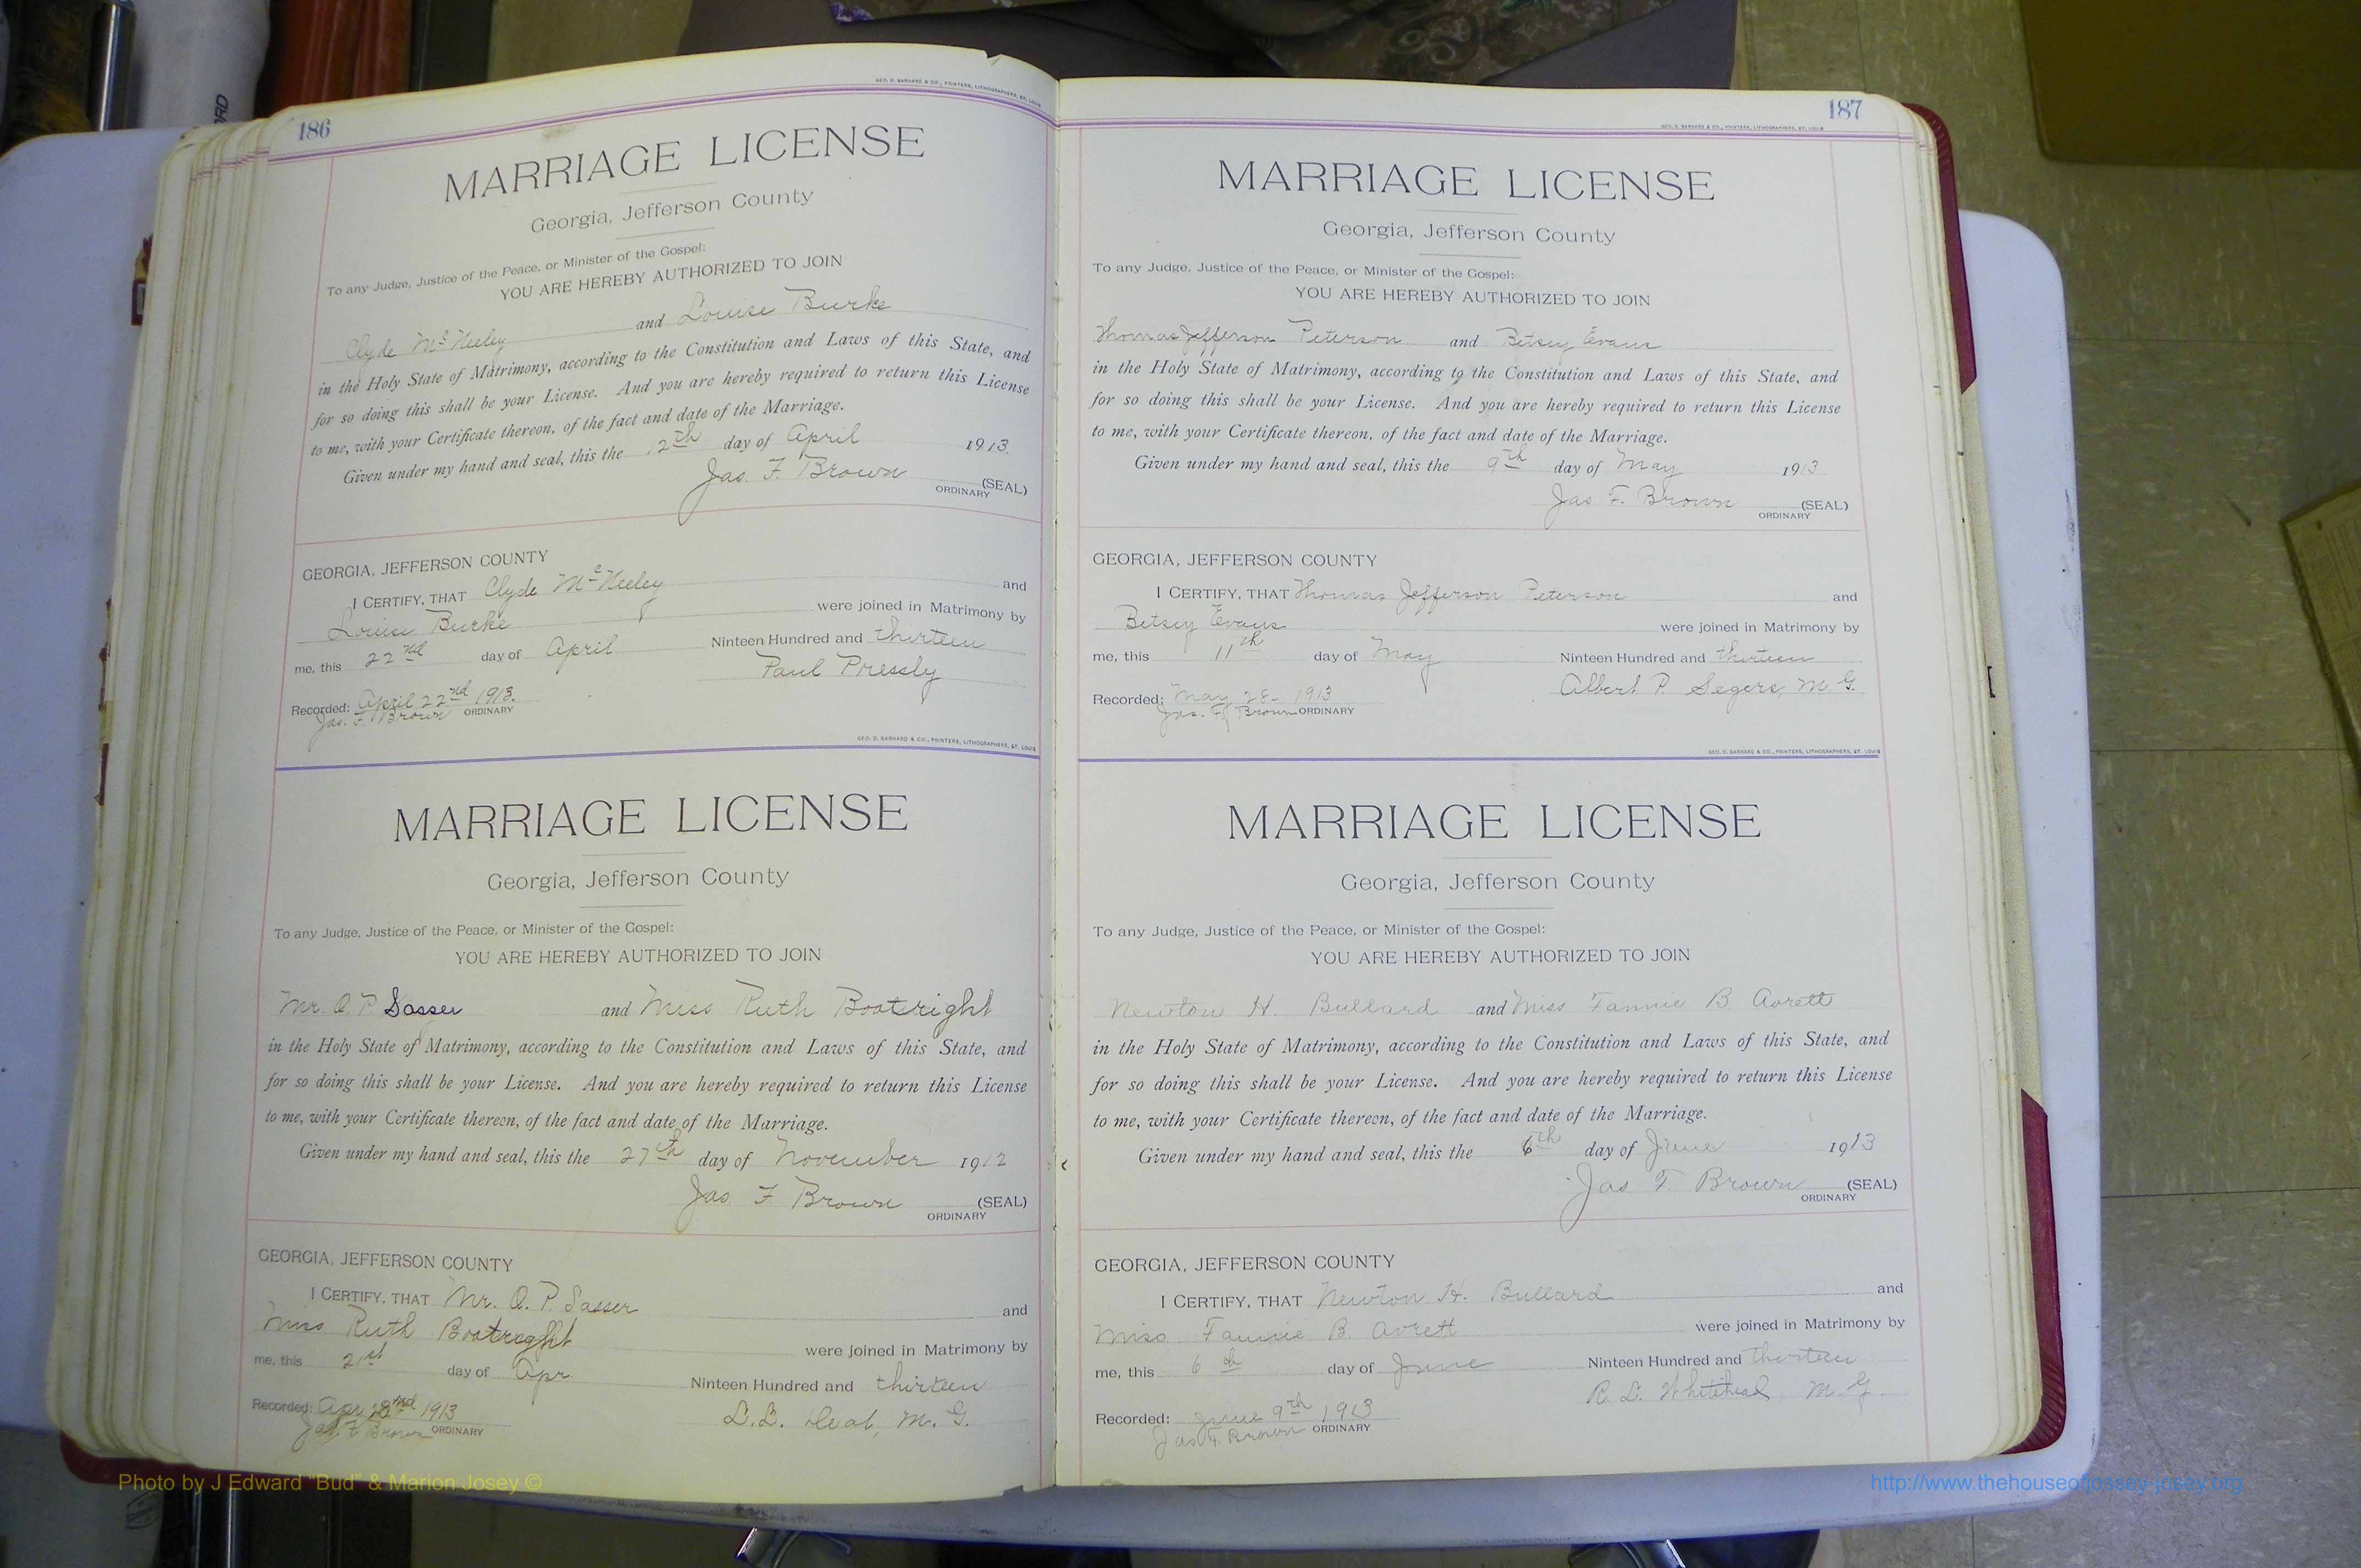 186
GEO. D. BARNARD & CO., PRINTERS, LITHOGRAPHERS, ST. LOUIS
MARRIAGE LICENSE
Georgia, Jefferson County
To any Judge, Justice of the Peace, or Minister of the Gospel:
YOU ARE HEREBY AUTHORIZED TO JOIN
Clyde McNeeley and Louise Burke
in the Holy State of Matrimony, according to the Constitution and Laws of this State, and
for so doing this shall be your License. And you are hereby required to return this License
to me, with your Certificate thereon, of the fact and date of the Marriage.
Given under my hand and seal, this the 12th day of April 1913.
Jas. F. Brown (SEAL)
ORDINARY
GEORGIA, JEFFERSON COUNTY
I CERTIFY, THAT Clyde McNeeley and
Louise Burke were joined in Matrimony by
me, this 22nd day of April Ninteen Hundred and thirteen
Paul Pressly
Recorded: April 22nd 1913.
Jas. F. Brown ORDINARY
GEO. D. BARNARD & CO., PRINTERS, LITHOGRAPHERS, ST. LOUIS
MARRIAGE LICENSE
Georgia, Jefferson County
To any Judge, Justice of the Peace, or Minister of the Gospel:
YOU ARE HEREBY AUTHORIZED TO JOIN
Mr. O. P. Sasser and Miss Ruth Boatright
in the Holy State of Matrimony, according to the Constitution and Laws of this State, and
for so doing this shall be your License. And you are hereby required to return this License
to me, with your Certificate thereon, of the fact and date of the Marriage.
Given under my hand and seal, this the 27th day of November 1912
Jas. F Brown (SEAL)
ORDINARY
GEORGIA, JEFFERSON COUNTY
I CERTIFY, THAT Mr. O. P. Sasser and
Miss Ruth Boatright were joined in Matrimony by
me, this 21st day of Apr Ninteen Hundred and thirteen
L.L. Deal, M. G.
Recorded: Apr 1913
Jas F Brown ORDINARY
187
GEO. D. BARNARD & CO., PRINTERS, LITHOGRAPHERS, ST. LOUIS
MARRIAGE LICENSE
Georgia, Jefferson County
To any Judge, Justice of the Peace, or Minister of the Gospel:
YOU ARE HEREBY AUTHORIZED TO JOIN
Thomas Jefferson Peterson and Betsey Evans
in the Holy State of Matrimony, according to the Constitution and Laws of this State, and
for so doing this shall be your License. And you are hereby required to return this License
to me, with your Certificate thereon, of the fact and date of the Marriage.
Given under my hand and seal, this the 9th day of May 1913
Jas F. Brown (SEAL)
ORDINARY
GEORGIA, JEFFERSON COUNTY
I CERTIFY, THAT Thomas Jefferson Peterson and
Betsey Evans were joined in Matrimony by
me, this 11th day of May Ninteen Hundred and thirteen
Albert P. Segers, M. G.
Recorded: May 28- 1913
Jas. F. Brown ORDINARY
GEO. D. BARNARD & CO., PRINTERS, LITHOGRAPHERS, ST. LOUIS
MARRIAGE LICENSE
Georgia, Jefferson County
To any Judge, Justice of the Peace, or Minister of the Gospel:
YOU ARE HEREBY AUTHORIZED TO JOIN
Newton H. Bullard and Miss Fannie B. Avrett
in the Holy State of Matrimony, according to the Constitution and Laws of this State, and
for so doing this shall be your License. And you are hereby required to return this License
to me, with your Certificate thereon, of the fact and date of the Marriage.
Given under my hand and seal, this the 6th day of June 1913
Jas F. Brown (SEAL)
ORDINARY
GEORGIA, JEFFERSON COUNTY
I CERTIFY, THAT Newton H. Bullard and
Miss Fannie B Avrett were joined in Matrimony by
me, this 6th day of June Ninteen Hundred and thirteen
R. L. Whitehead M. G.
Recorded: June 9th 1913
Jas F. Brown ORDINARY
Photo by J Edward "Bud" & Marion Josey ©
http://www.thehouseofjossey-josey.org